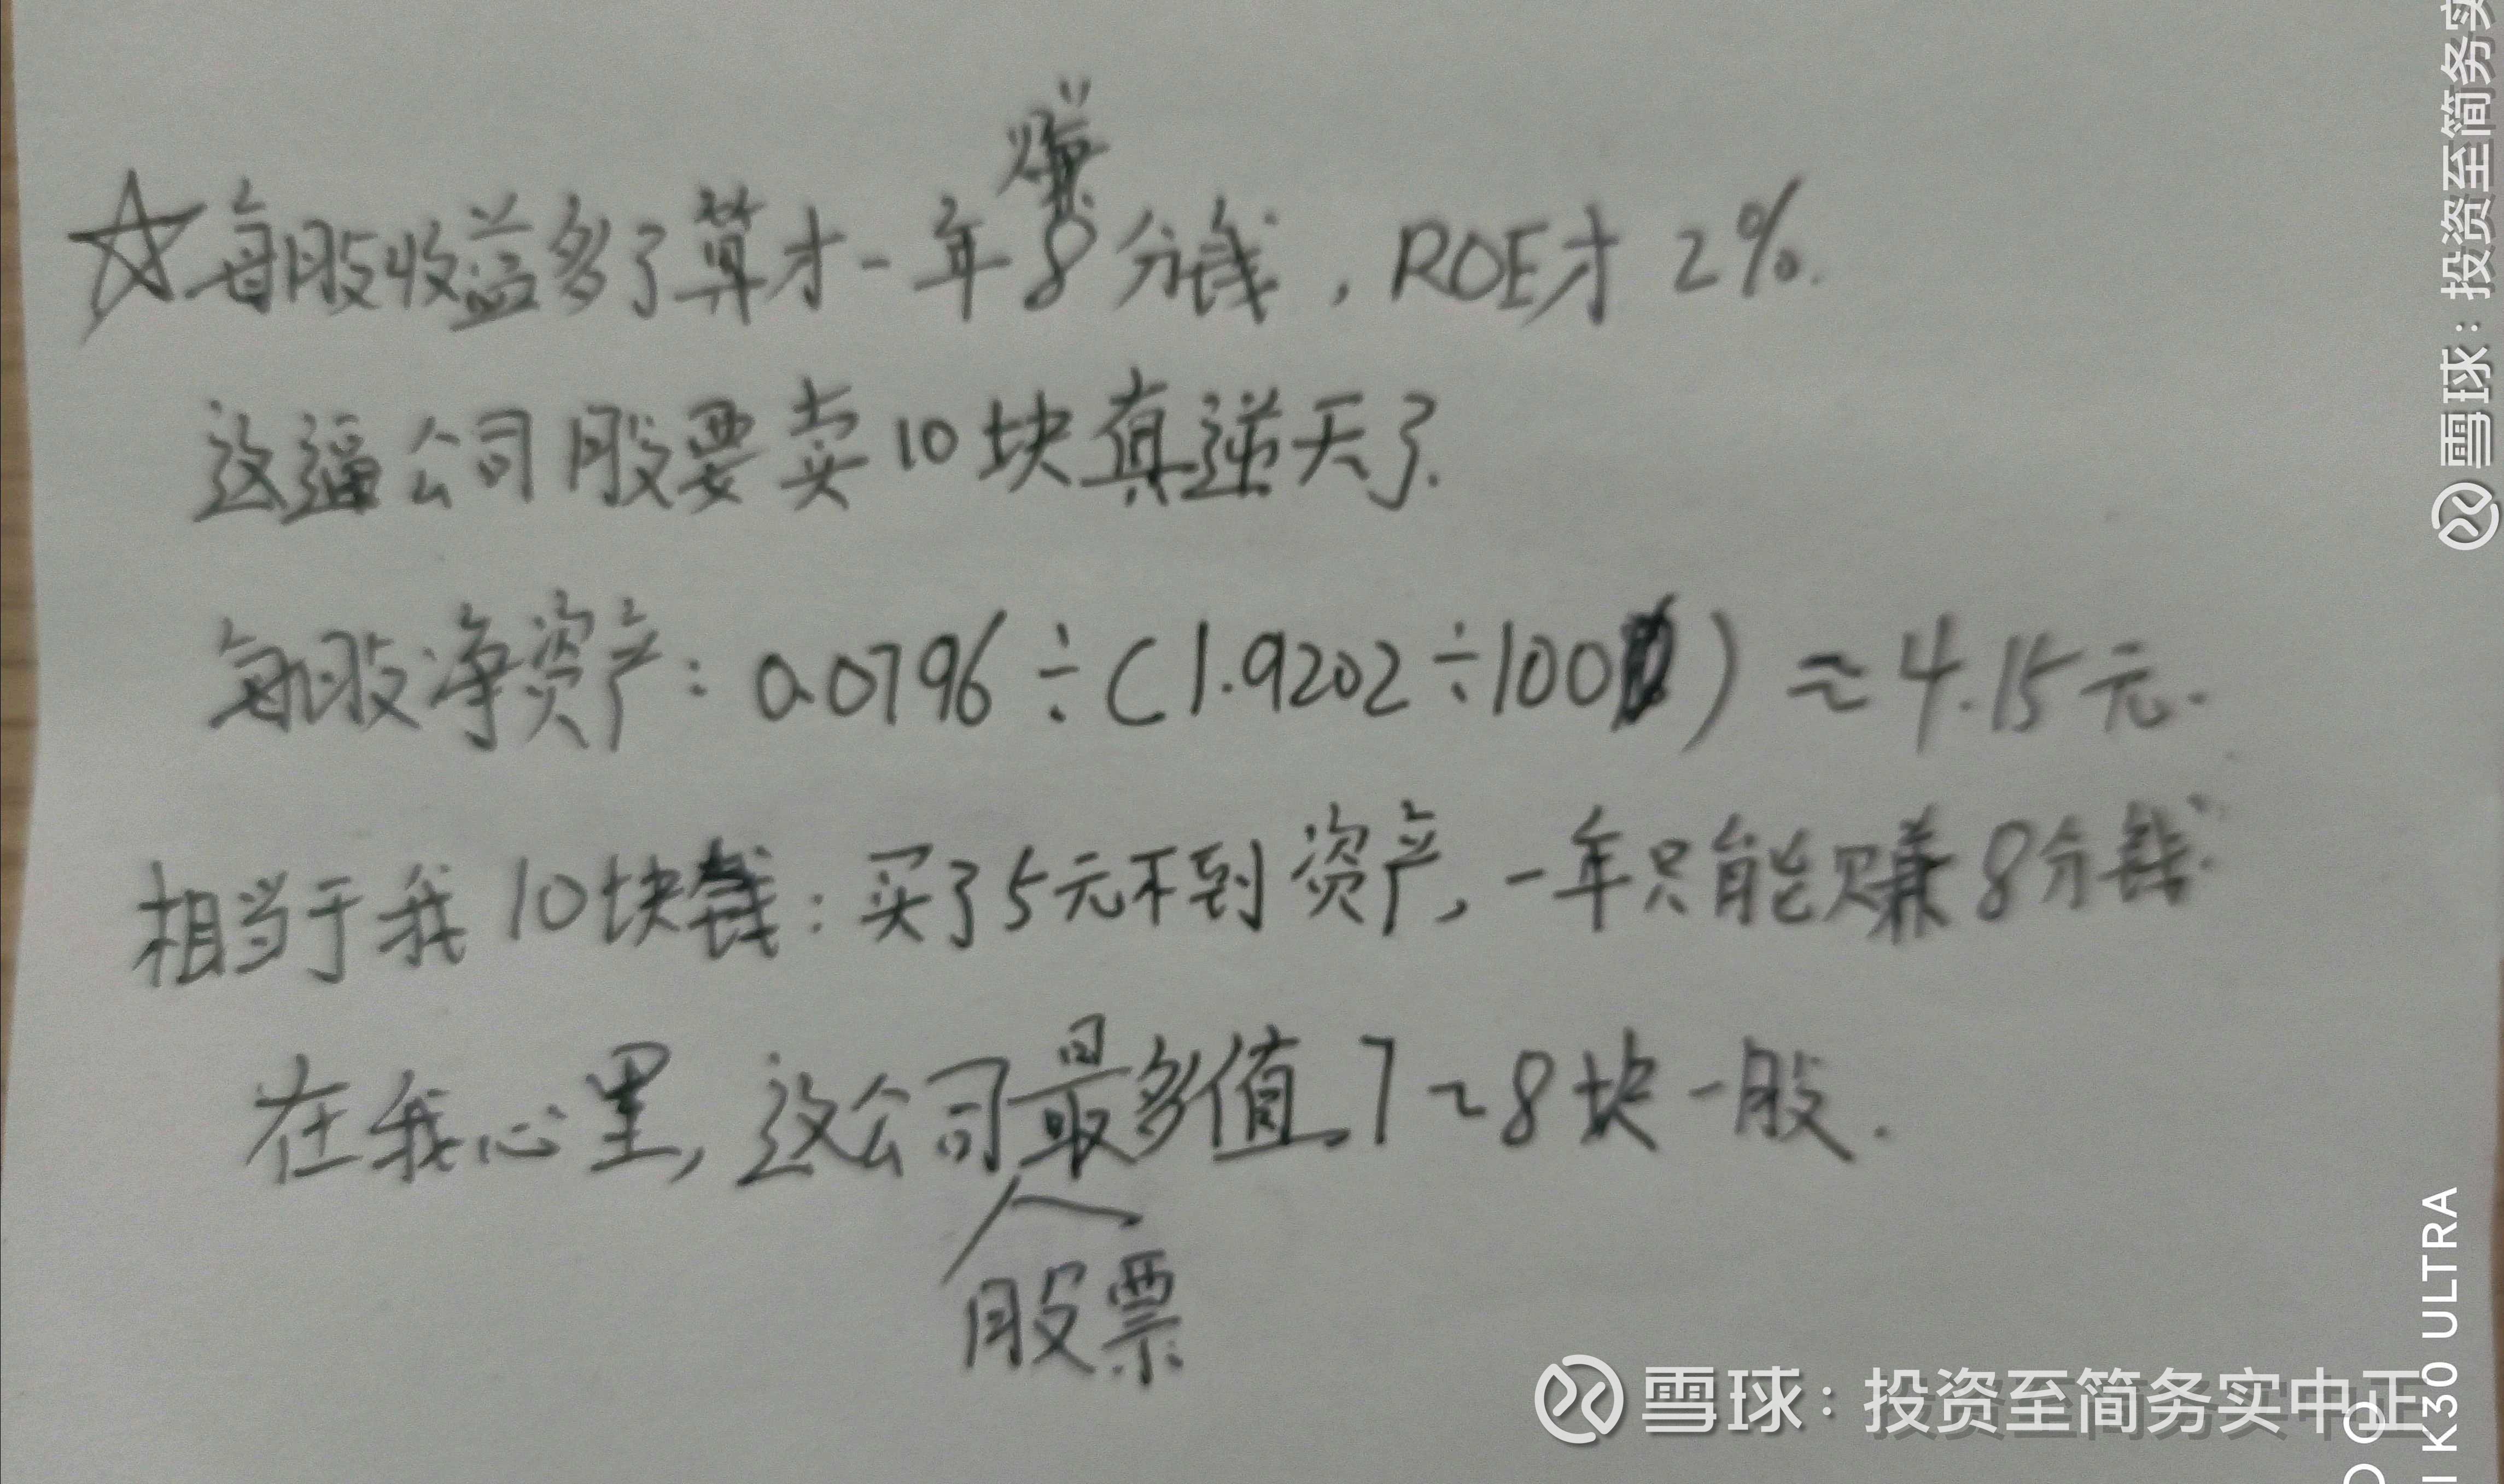 ☆每股收益多了算才一年赚8分钱，ROE才2%.
这逼公司股要卖10块真逆天了.
每股净资产：0.0796÷(1.9202÷100)≈4.15元.
相当于我10块钱：买了5元不到资产，一年只能赚8分钱.
在我心里，这公司股票最多值7~8块一股.
雪球：投资至简务实中正
雪球：投资至简务实
I K30 ULTRA